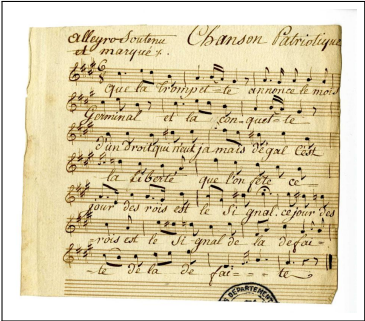 Allegro Soutenu
et marqué. Chanson Patriotique
que la trompet-te annonce le mois
Germinal et la con-quet-te
d'un Droit qui n'eut jamais d'égal C'est
la Liberté que l'on fête ce
jour des rois est le Si gnal. ce jour des
rois est le Si gnal de la défai-
-te de la de fai---te
DEPARTEMENT